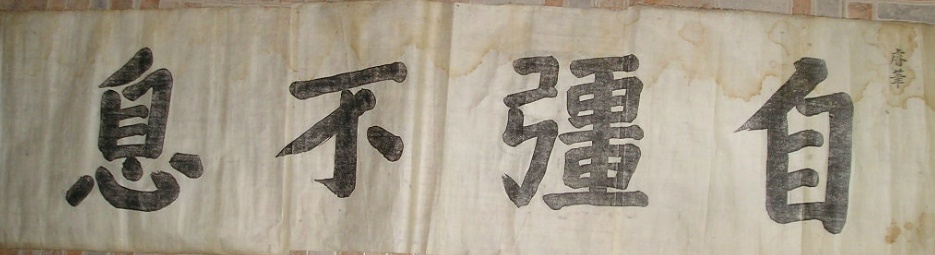 自彊不息